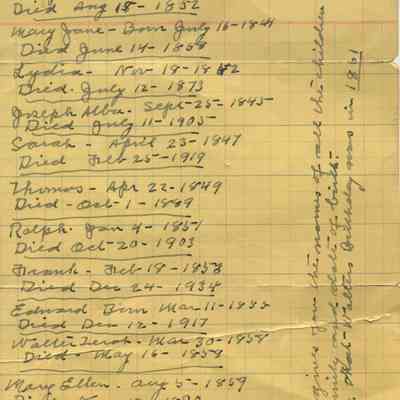 Died Aug 18 - 1852
Mary Jane - Born July 16 - 1841
Died June 14 - 1858
Lydia - Nov 19 - 1842
Died - July 12 - 1873
Joseph Alba - Sept - 25 - 1845
Died July 11 - 1905
Sarah - April 23 - 1847
Died Feb 25 - 1919
Thomas - Apr 22 - 1849
Died - Oct - 1 - 1889
Ralph - Jan 4 - 1851
Died Oct - 20 - 1903
Frank - Feb 18 - 1853
Died Dec 24 - 1934
Edward Born Mar 11 - 1855
Died Dec 12 - 1917
Walter - Mar 30 - 1858
Died - May 16 - 1859
Mary Ellen - Aug 5 - 1859
gives you the names of all the children
and date of birth -
that Walters Birthday was in 1861